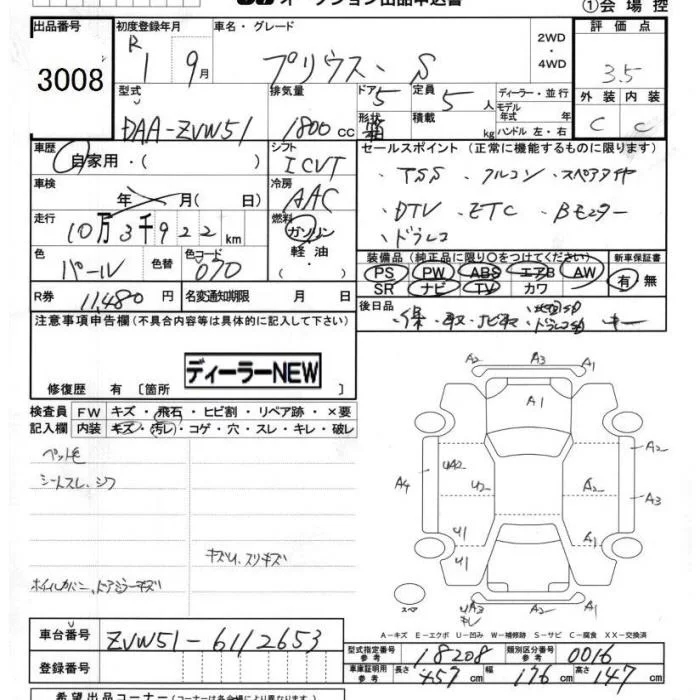 オークション出品申込書
①会場控
出品番号 初度登録年月 車名・グレード 2WD・4WD 評価点
3008 R 1 9月 プリウス・S 3.5
型式 排気量 ドア 5 定員 5人 ディーラー・並行 外装 内装
DAA-ZVW51 1800cc 形状 箱 積載 kg モデル年式 年 ハンドル 左・右 C C
車歴 自家用・( ) シフト ICVT セールスポイント(正常に機能するものに限ります)
車検 年 月(日) 冷房 AAC ・TSS ・アルコン ・スペアタイヤ
走行 10万3千922km 燃料 ガソリン・軽油 ・DTV ・ETC ・Bモニター
・ドラレコ
色 パール 色替 色コード 070 装備品(純正品に限り○をつけてください) 新車保証書
PS PW ABS エアB AW 有・無
SR ナビ TV カワ
R券 11,480円 名変通知期限 月 日
後日品 ・保・取・ナビ取 キー
注意事項申告欄(不具合内容等は具体的に記入して下さい)
ディーラーNEW
修復歴 有〔箇所 〕
検査員記入欄 FW キズ・飛石・ヒビ割・リペア跡・×要
内装 キズ・汚レ・コゲ・穴・スレ・キレ・破レ
ペット毛
シートスレ、シワ
キズU、スリキズ
ホイルカバー、ドアミラーキズ
A2 A3 A1
A1
UA2 A2
A4 U2 A2 A3
U1 U1 A1
スペア UA3 キレ A2 A1
A-キズ E-エクボ U-凹み W-補修跡 S-サビ C-腐食 XX-交換済
車台番号 ZVW51-6112653
型式指定番号参考 18208 類別区分番号参考 0016
登録番号
車庫証明用参考 長さ 457cm 幅 176cm 高さ 147cm
希望出品コーナー